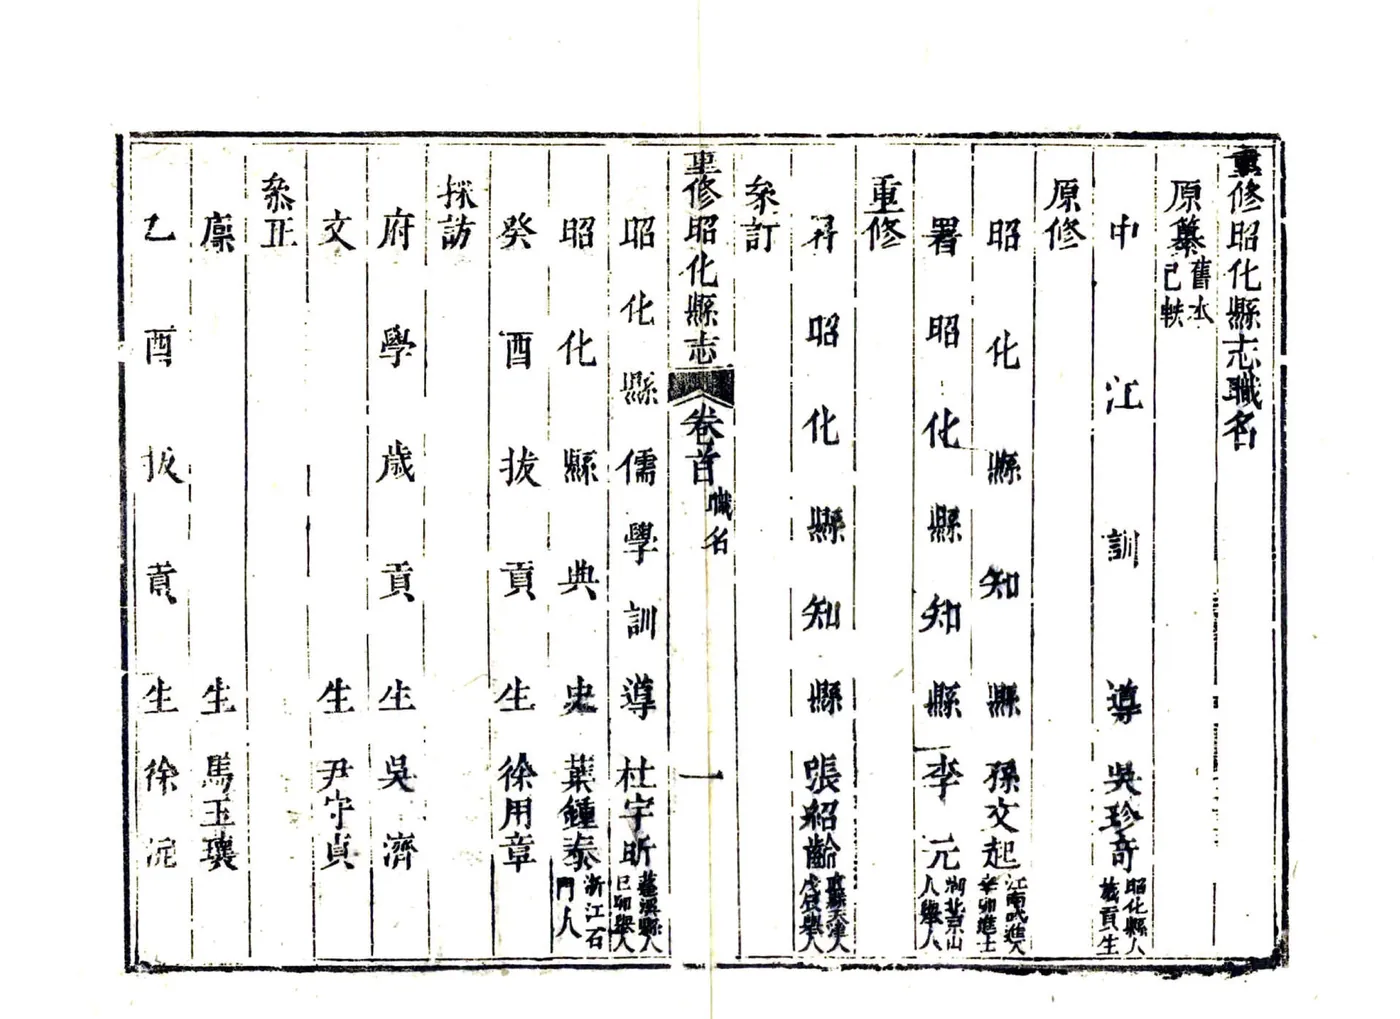 重修昭化縣志職名
原纂舊本已軼
中江訓導吳珍奇昭化縣人拔貢生
原修
昭化縣知縣孫文起江南武進人辛卯進士
署昭化縣知縣李元湖北京山人舉人
重修
昇昭化縣知縣張紹齡直隸天津人戊辰舉人
叅訂
重修昭化縣志
卷首
職名
一
昭化縣儒學訓導杜宇昕蓬溪縣人己卯舉人
昭化縣典史葉鍾泰浙江石門人
癸酉拔貢生徐用章
採訪
府學歲貢生吳濟
文生尹守貞
叅正
廩生馬玉瓖
乙酉拔貢生徐浣